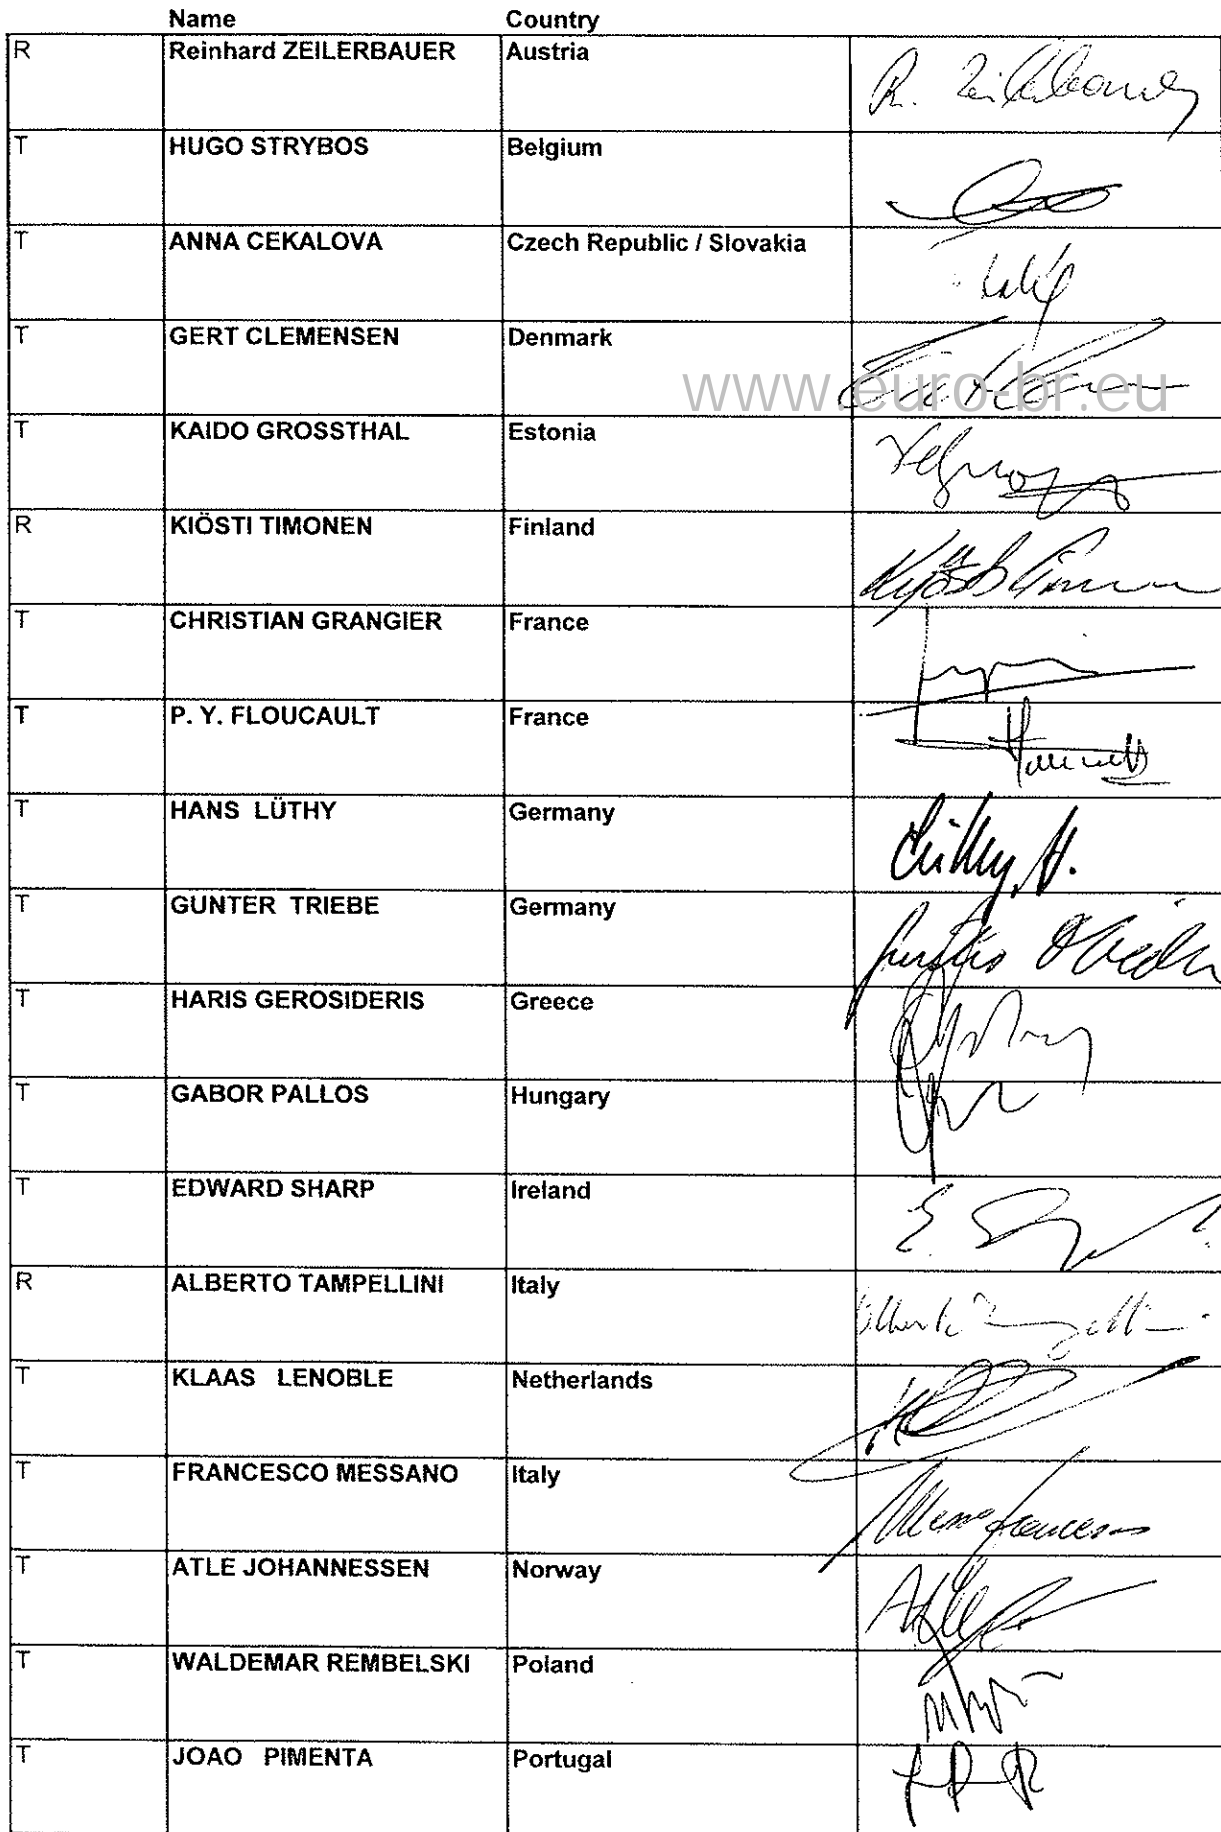 Name Country
R Reinhard ZEILERBAUER Austria R. Zeilerbauer
T HUGO STRYBOS Belgium
T ANNA CEKALOVA Czech Republic / Slovakia
T GERT CLEMENSEN Denmark
www.euro-br.eu
T KAIDO GROSSTHAL Estonia
R KIÖSTI TIMONEN Finland
T CHRISTIAN GRANGIER France
T P. Y. FLOUCAULT France
T HANS LÜTHY Germany Lüthy, H.
T GUNTER TRIEBE Germany
T HARIS GEROSIDERIS Greece
T GABOR PALLOS Hungary
T EDWARD SHARP Ireland
R ALBERTO TAMPELLINI Italy
T KLAAS LENOBLE Netherlands
T FRANCESCO MESSANO Italy
T ATLE JOHANNESSEN Norway
T WALDEMAR REMBELSKI Poland
T JOAO PIMENTA Portugal